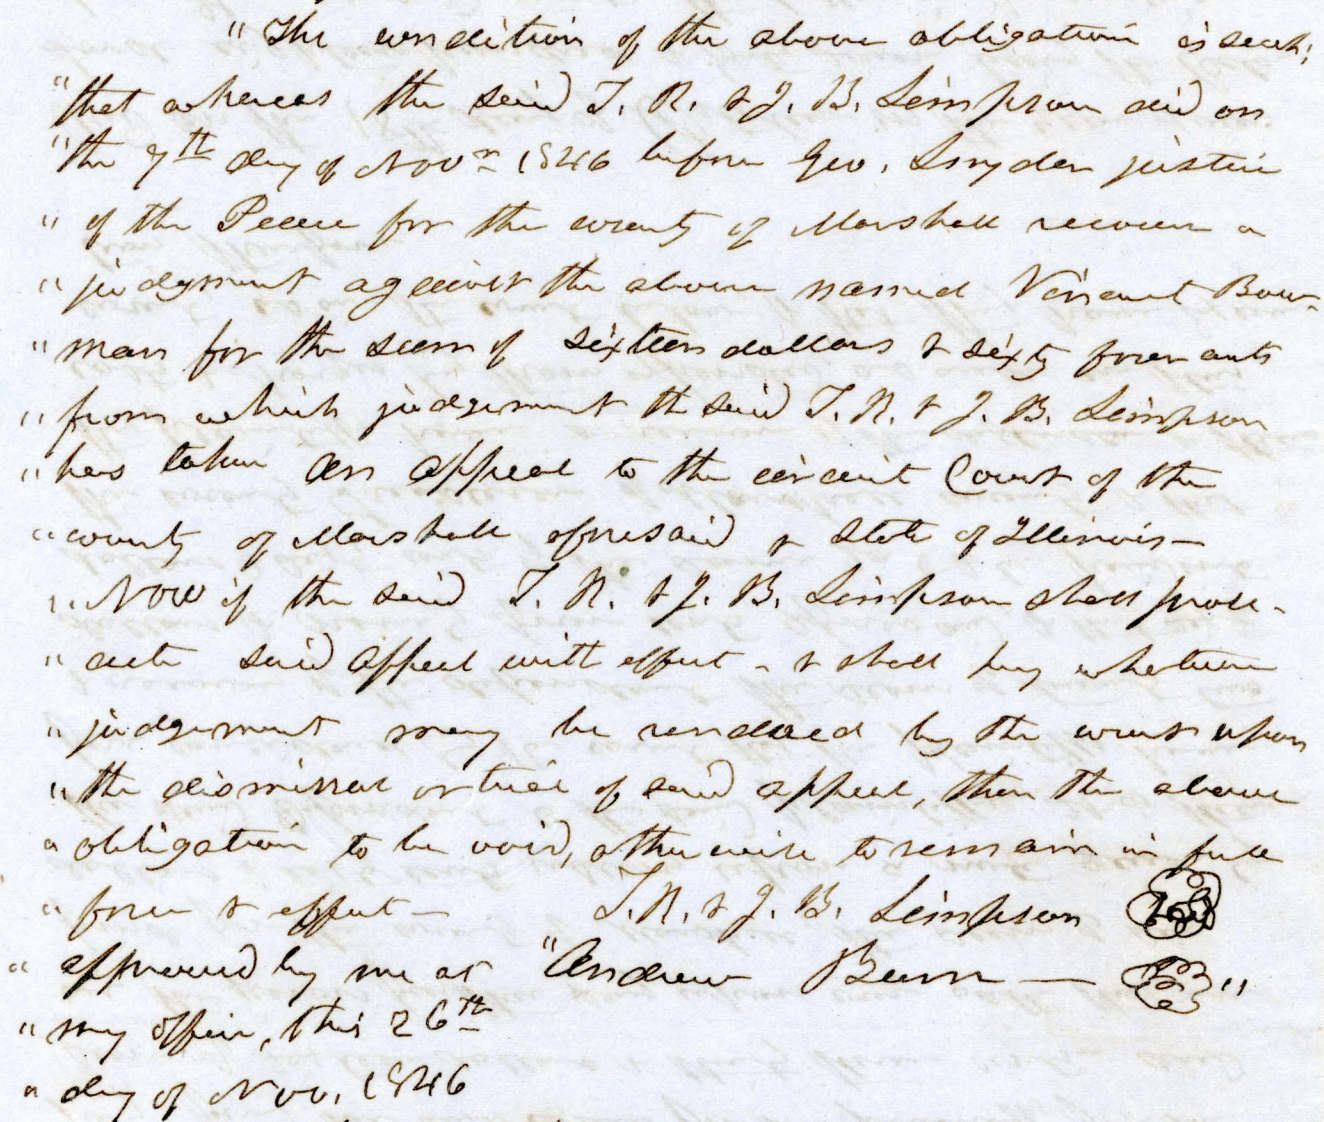 "The condition of the above obligation is such,
"that whereas the said T. R. & J. B. Simpson did on
"the 7th day of Novr 1846 before Geo. Snyder justice
" of the Peace for the county of Marshall recover a
" judgment against the above named Vincent Bow-
" man for the sum of sixteen dollars & sixty four cents
" from which judgement the said T. R. & J. B. Simpson
" has taken an appeal to the circuit Court of the
" county of Marshall aforesaid & State of Illinois—
" Now if the said T. R. & J. B. Simpson shall prose-
" cute said appeal with effect - & shall pay whatever
" judgement may be rendered by the court upon
" the dismissal or trial of said appeal, then the above
" obligation to be void, otherwise to remain in full
" force & effect— T. R. & J. B. Simpson
" approved by me at "Andrew — "
" my office, this 26th
" day of Nov. 1846